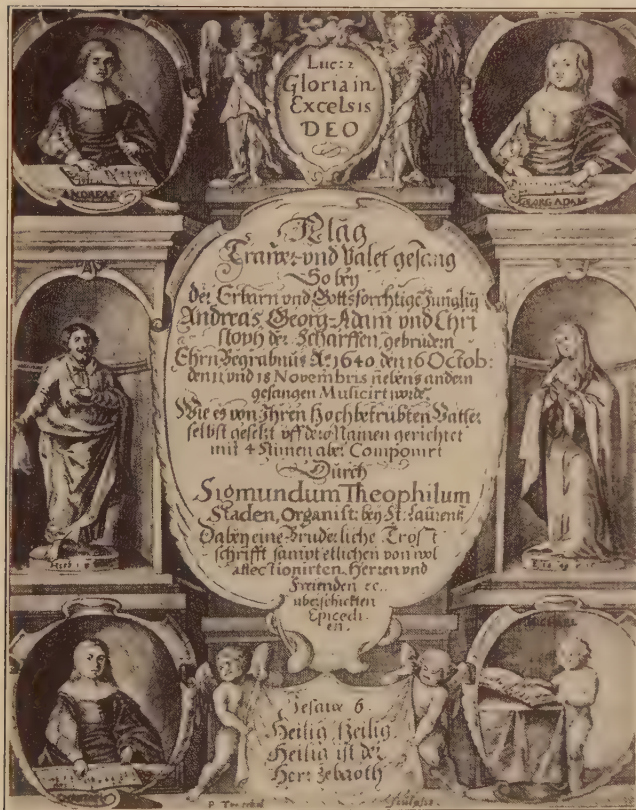 Luc: 2
Gloria in
Excelsis
DEO
ANDREAS
GEORG ADAM
Klag
Traŵr und Valet gesang
So beÿ
der Erbarn und Gottsforchtige Jungling
Andreas, Georg-Adam und Chri
stoph der Scharffen, gebrüdern
Ehrn Begräbnus A° 1640 den 16 Octob:
den 11 und 18 Novembris nebens andern
gesangen Musicirt worde
Wie es von Jhren Hochbetrübten Vatter
selbst gesetzt uff dero Namen gerichtet
mit 4 Stimen aber Componirt
Durch
Sigmundum Theophilum
Staden, Organist: beÿ St: Laurentz
Dabeÿ eine Bruderliche Trost
schrifft sampt etlichen von wol
affectionirten Herren und
Freunden ec..
überschickten
Epicedi
en.
MICHAEL
Jesaiæ 6.
Heilig Heilig
Heilig ist der
Herr Zebaoth
P Troschel
Sculpsit